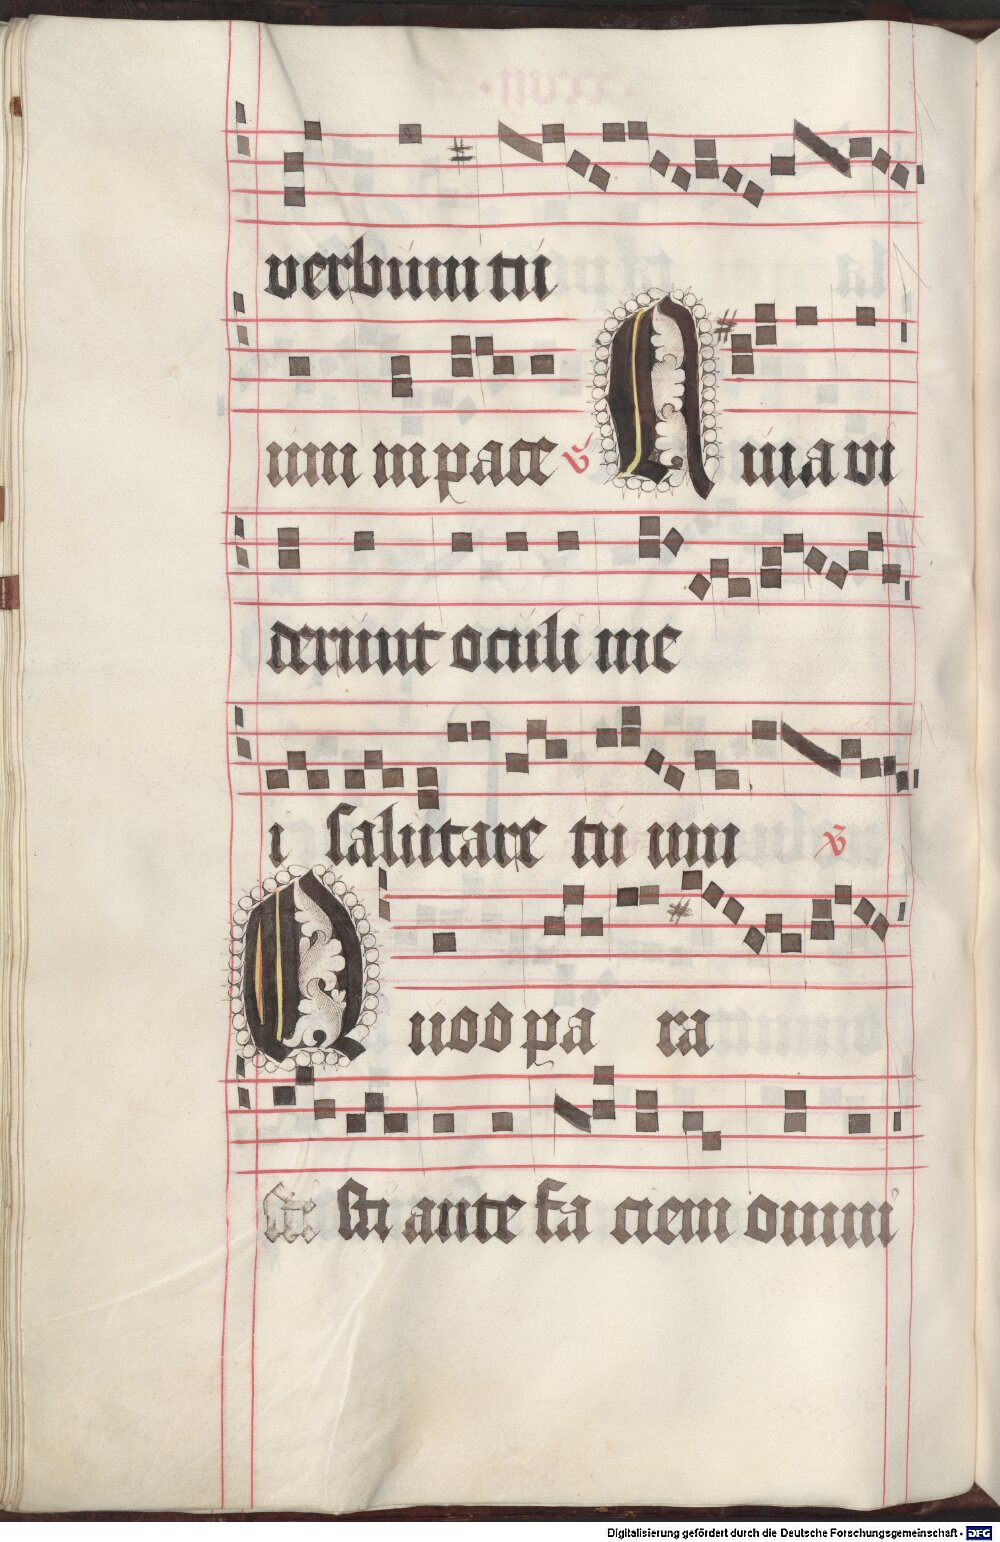 verbum tu
um in pace ℣ Quia vi
derunt oculi me
i salutare tu um ℣
Quod pa ra
sti ante fa ciem omni
Digitalisierung gefördert durch die Deutsche Forschungsgemeinschaft - DFG